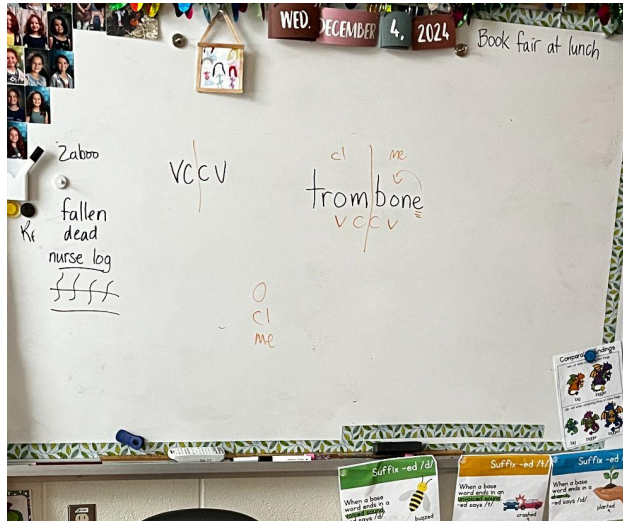 WED. DECEMBER 4, 2024
Book fair at lunch
Zaboo
VCCV
cl me
trombone
VCCV
fallen
dead
nurse log
O
cl
me
big
bigger
big
bigger
Suffix -ed /d/
When a base
word ends in a
voiced sound,
-ed says /d/.
buzzed
Suffix -ed /t/
When a base
word ends in an
unvoiced sound
-ed says /t/.
crashed
Suffix -ed
When a base
word ends in
-ed says /
planted